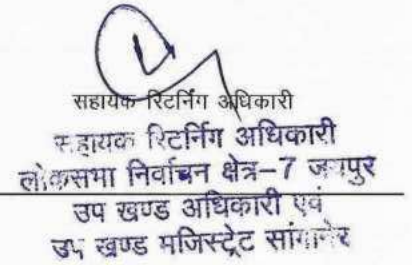 सहायक रिटर्निंग अधिकारी
सहायक रिटर्निंग अधिकारी
लोकसभा निर्वाचन क्षेत्र-7 जयपुर
उप खण्ड अधिकारी एवं
उप खण्ड मजिस्ट्रेट सांगानेर